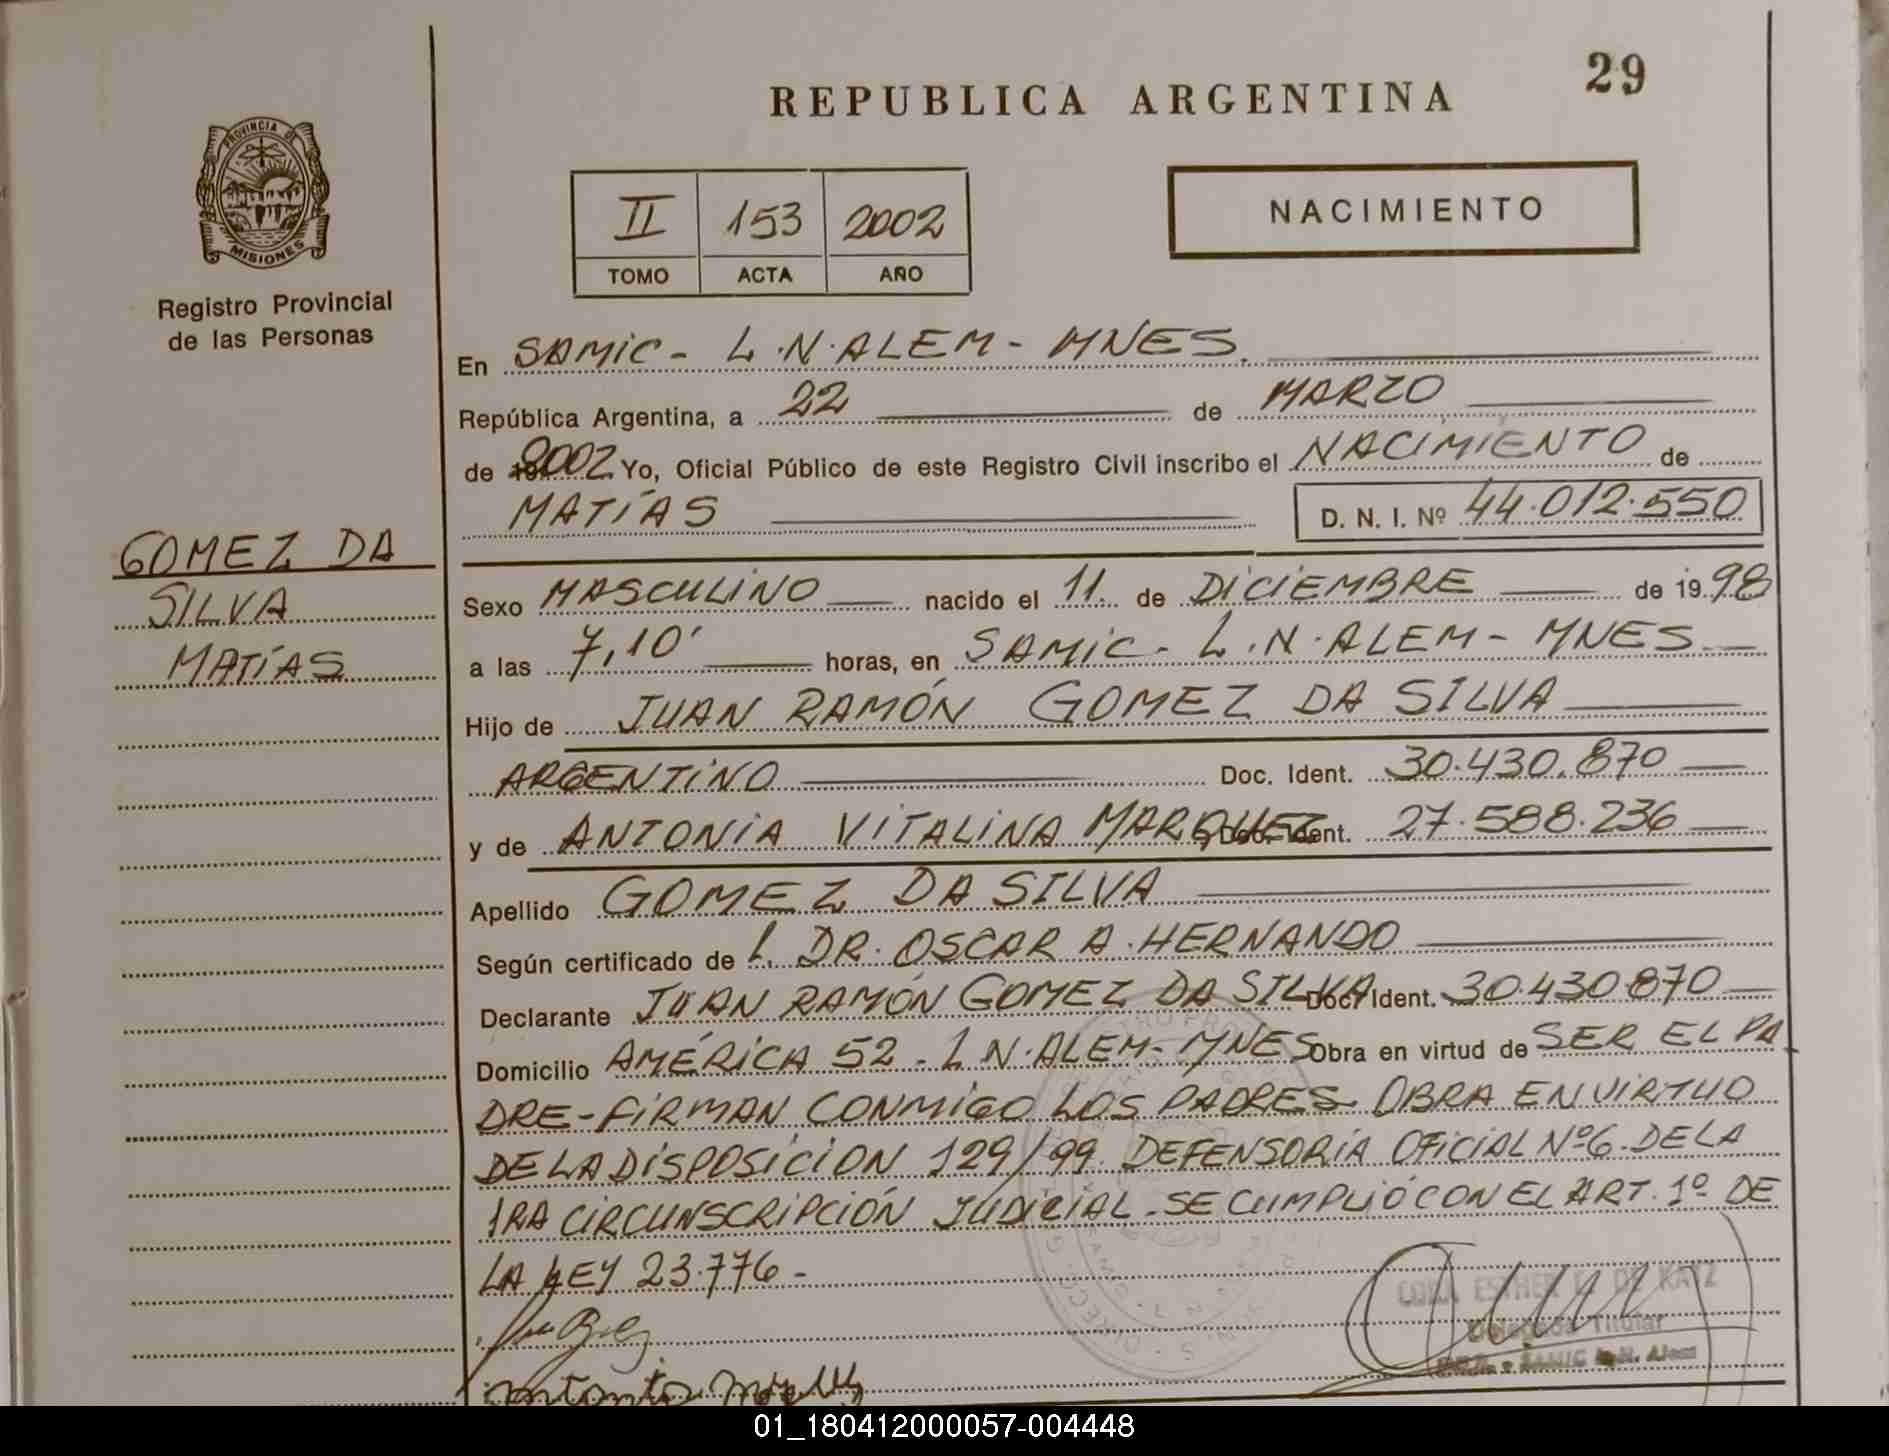 29
REPUBLICA ARGENTINA
PROVINCIA DE
MISIONES
Registro Provincial
de las Personas
II 153 2002
TOMO ACTA AÑO
NACIMIENTO
En SAMIC - L.N. ALEM - MNES.
República Argentina, a 22 de MARZO
de 2002 Yo, Oficial Público de este Registro Civil inscribo el NACIMIENTO de
MATÍAS D. N. I. Nº 44.012.550
GOMEZ DA
SILVA
MATÍAS
Sexo MASCULINO nacido el 11 de DICIEMBRE de 1998
a las 7,10' horas, en SAMIC - L.N. ALEM - MNES
Hijo de JUAN RAMÓN GOMEZ DA SILVA
ARGENTINO Doc. Ident. 30.430.870
y de ANTONIA VITALINA MARQUEZ Doc. Ident. 27.588.236
Apellido GOMEZ DA SILVA
Según certificado de l. DR. OSCAR A. HERNANDO
Declarante JUAN RAMÓN GOMEZ DA SILVA Doc. Ident. 30.430.870
Domicilio AMÉRICA 52 - L.N. ALEM - MNES Obra en virtud de SER EL PA
DRE - FIRMAN CONMIGO LOS PADRES. OBRA EN VIRTUD
DE LA DISPOSICION 129/99 DEFENSORÍA OFICIAL Nº6. DE LA
1RA CIRCUNSCRIPCIÓN JUDICIAL. SE CUMPLIÓ CON EL ART. 1º DE
LA LEY 23.776 -
ESTHER DE KATZ
Delegada Titular
SAMIC L.N. Alem
01_180412000057-004448